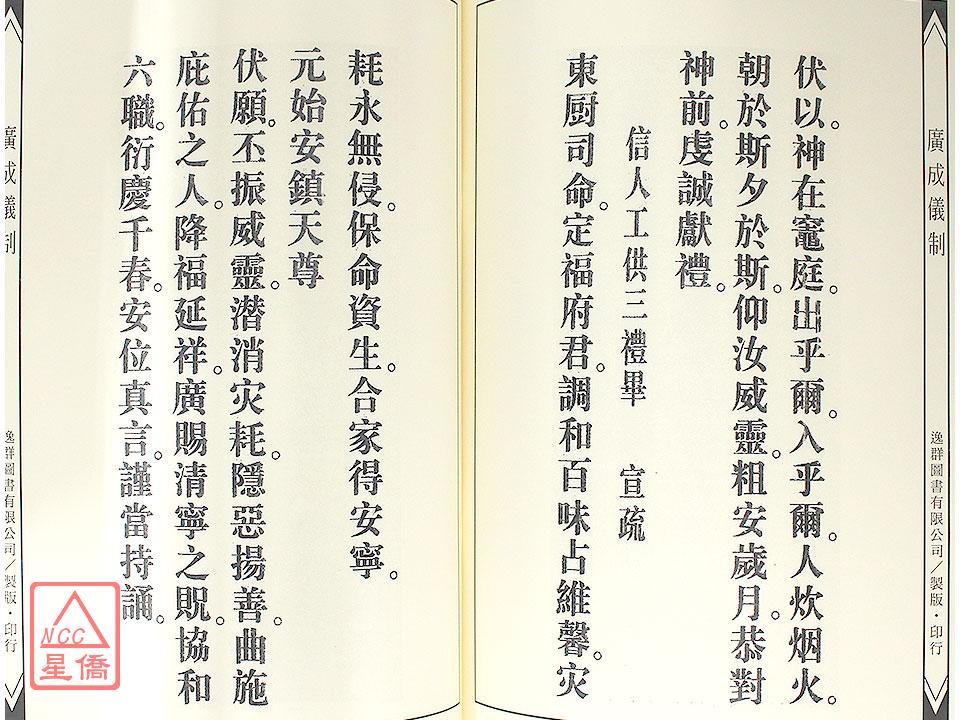 廣成儀制
逸群圖書有限公司／製版・印行
伏以。神在竈庭。出乎爾。入乎爾。人炊烟火。
朝於斯夕於斯。仰汝威靈。粗安歲月。恭對
神前。虔誠獻禮。
信人工供三禮畢 宣疏
東厨司命。定福府君。調和百味占維馨。灾
耗永無侵。保命資生。合家得安寧。
元始安鎮天尊
伏願。丕振威靈。潛消灾耗。隱惡揚善。曲施
庇佑之人。降福延祥。廣賜清寧之貺。協和
六職。衍慶千春。安位真言。謹當持誦。
廣成儀制
逸群圖書有限公司／製版・印行
NCC
星僑